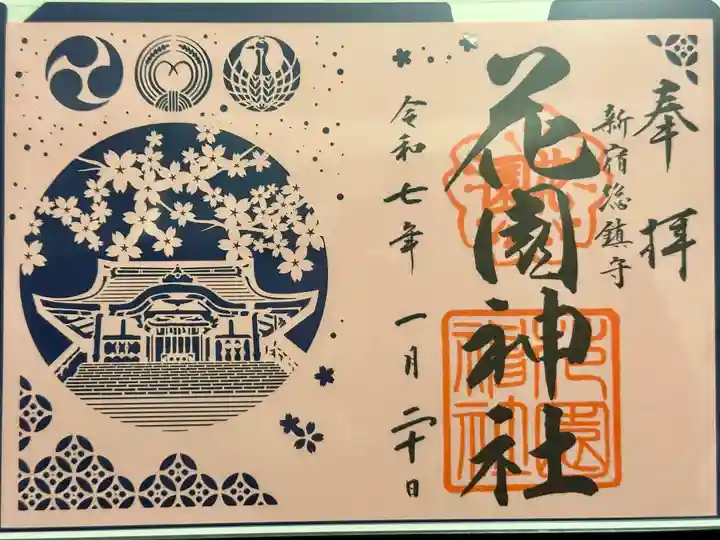 奉拝
新宿総鎮守
花園神社
令和七年 一月二十日